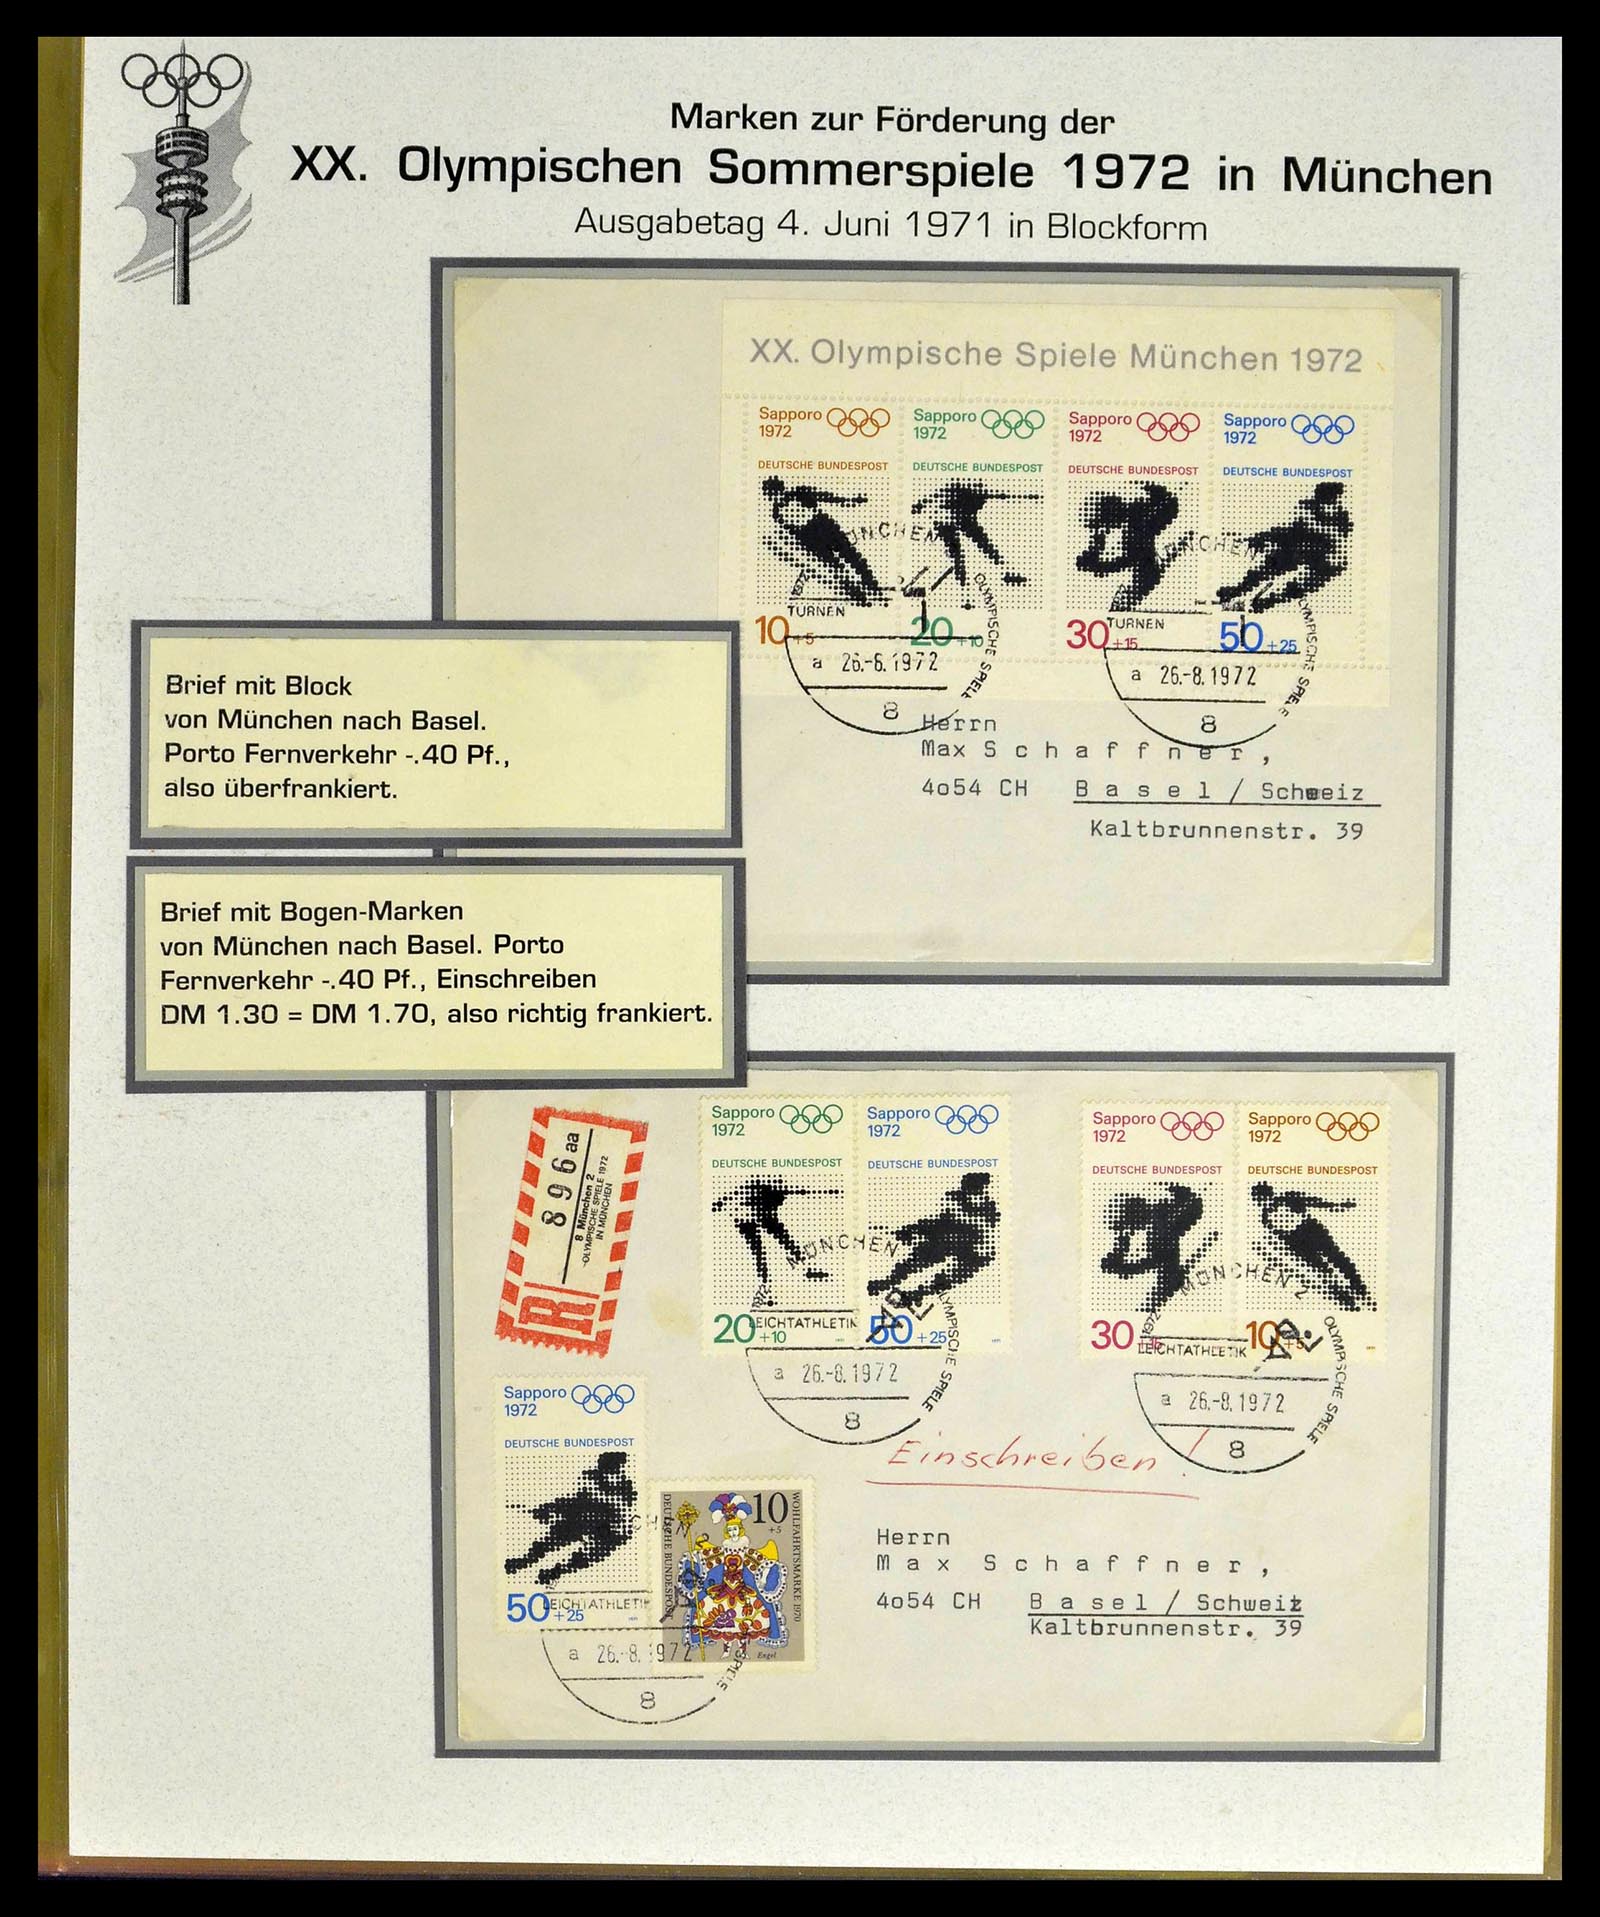 Marken zur Förderung der
XX. Olympischen Sommerspiele 1972 in München
Ausgabetag 4. Juni 1971 in Blockform
XX. Olympische Spiele München 1972
Sapporo
1972
DEUTSCHE BUNDESPOST
10+5
Sapporo
1972
DEUTSCHE BUNDESPOST
20+10
Sapporo
1972
DEUTSCHE BUNDESPOST
30+15
Sapporo
1972
DEUTSCHE BUNDESPOST
50+25
MÜNCHEN
OLYMPISCHE SPIELE
1972
TURNEN
a 26.-8.1972
8
MÜNCHEN
OLYMPISCHE SPIELE
TURNEN
a 26.-8.1972
8
Herrn
Max Schaffner,
4o54 CH Basel / Schweiz
Kaltbrunnenstr. 39
Brief mit Block
von München nach Basel.
Porto Fernverkehr -.40 Pf.,
also überfrankiert.
Brief mit Bogen-Marken
von München nach Basel. Porto
Fernverkehr -.40 Pf., Einschreiben
DM 1.30 = DM 1.70, also richtig frankiert.
R
896 aa
8 München 2
OLYMPISCHE SPIELE 1972
IN MÜNCHEN
Sapporo
1972
DEUTSCHE BUNDESPOST
20+10
Sapporo
1972
DEUTSCHE BUNDESPOST
50+25
MÜNCHEN
OLYMPISCHE SPIELE
1972
LEICHTATHLETIK
a 26.-8.1972
8
Sapporo
1972
DEUTSCHE BUNDESPOST
30+15
Sapporo
1972
DEUTSCHE BUNDESPOST
10+5
MÜNCHEN 2
OLYMPISCHE SPIELE
1972
LEICHTATHLETIK
a 26.-8.1972
8
Sapporo
1972
DEUTSCHE BUNDESPOST
50+25
LEICHTATHLETIK
a 26.-8.1972
8
SPIELE
DEUTSCHE BUNDESPOST
10
+5
WOHLFAHRTSMARKE 1970
Engel
Einschreiben!
Herrn
Max Schaffner,
4o54 CH Basel / Schweiz
Kaltbrunnenstr. 39